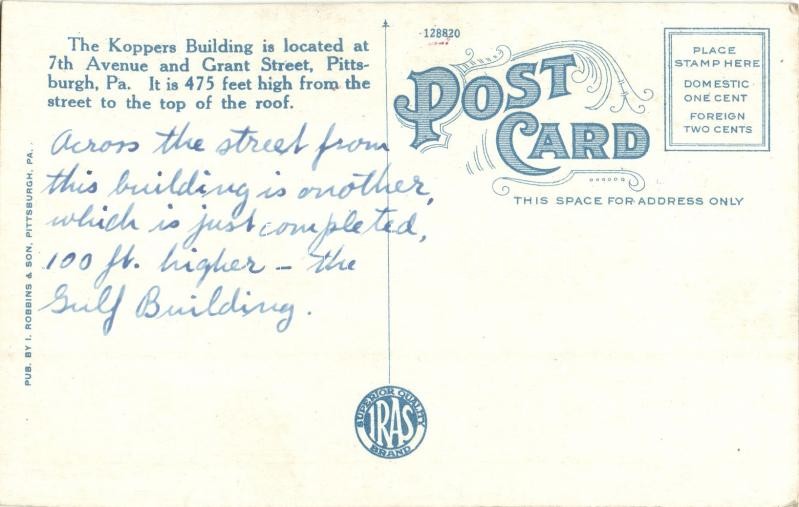 The Koppers Building is located at
7th Avenue and Grant Street, Pitts-
burgh, Pa. It is 475 feet high from the
street to the top of the roof.
Across the street from
this building is another,
which is just completed,
100 ft. higher – the
Gulf Building.
PUB. BY I. ROBBINS & SON, PITTSBURGH, PA.
128820
POST
CARD
THIS SPACE FOR ADDRESS ONLY
PLACE
STAMP HERE
DOMESTIC
ONE CENT
FOREIGN
TWO CENTS
SUPERIOR QUALITY
IRAS
BRAND